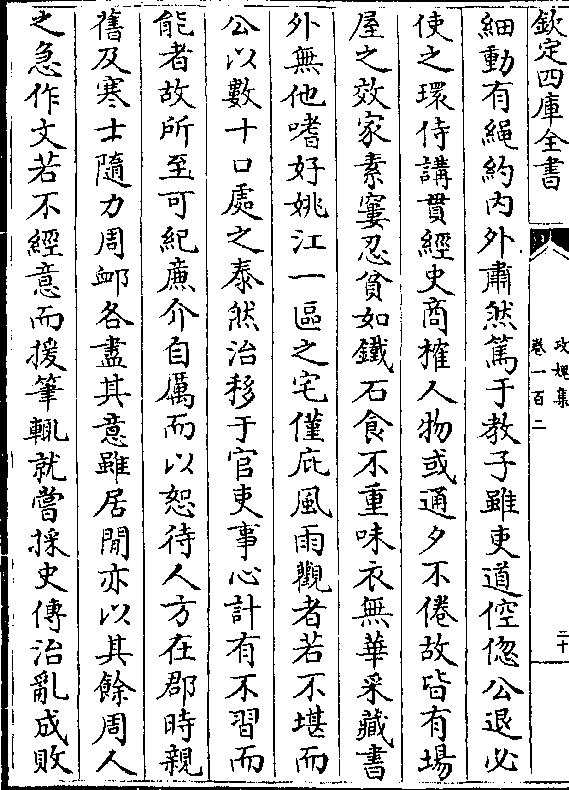 欽定四庫全書
攻媿集
卷一百二
二十
細動有繩約内外肅然篤于教子雖吏道倥偬公退必
使之環侍講貫經史商榷人物或通夕不倦故皆有場
屋之效家素窶忍貧如鐵石食不重味衣無華采藏書
外無他嗜好姚江一區之宅僅庇風雨觀者若不堪而
公以數十口處之泰然治移于官吏事心計有不習而
能者故所至可紀亷介自厲而以恕待人方在郡時親
舊及寒士隨力周䘏各盡其意雖居閒亦以其餘周人
之急作文若不經意而援筆輒就嘗採史傳治亂成敗